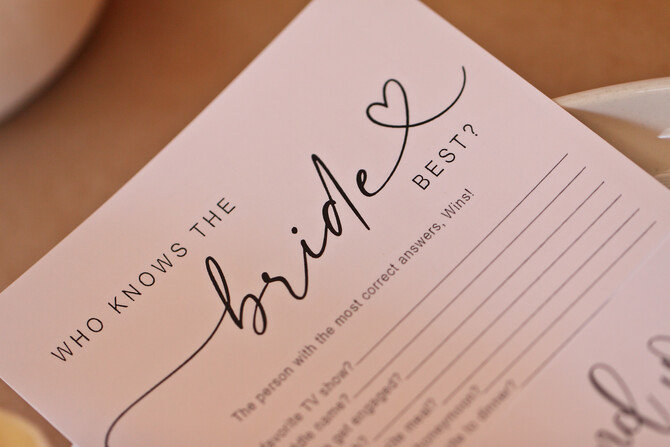 WHO KNOWS THE
bride
BEST?
The person with the most correct answers, Wins!
favorite TV show?
name?
get engaged?
meal?
to dinner?